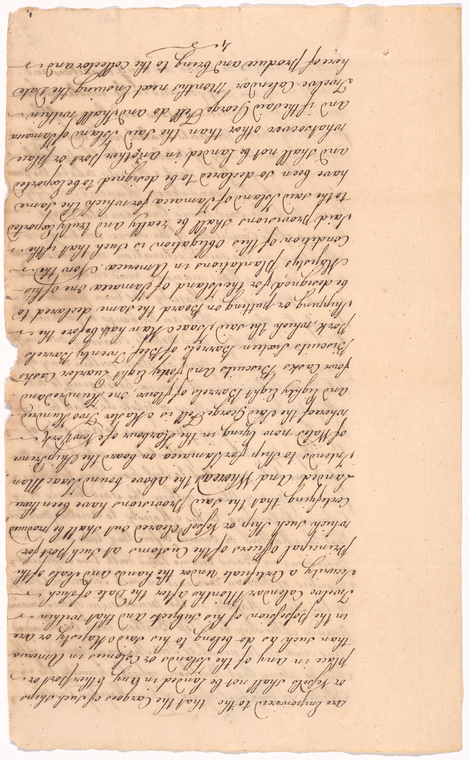 are Impowered to the that the Cargoes of such Ships
or Vessels shall not be landed in any Other port or
place in any of the Islands or Colonies in America
than such as do belong to his said Majesty or are
in the Possession of his Subjects and that within
Twelve Calendar Months after the Date of such
Security a Certificate under the hands and Seals of the
principal officers of the Customs at such Port for
which such Ship or Vessel Cleared out shall be produced
Certifying that the said Provisions have been there
Landed And Whereas the above bound Isaac Man
Intends to ship for Jamaica on board the Ship
of Wales now lying in the Harbour of New York
whereof the said George Fell is Master Two Hundred
and Eighty Eight Barrels of flour One Hundred and
four Casks Biscuits and forty Eight Quarter Casks
Biscuits Sixteen Barrels of Beef Twenty Barrels
Pork which the said Isaac Man hath before the
Shipping or putting on Board the same declared to
be designed for the Island of Jamaica one of his
Majestys plantations in America Now the
Condition of this Obligation is such that if the
said provisions shall be really and truly Exported
to the said Island of Jamaica for which the same
have been so declared to be designed to be Exported
and shall not be landed in another port or place
whatsoever other than the said Island of Jamaica
and if the said George Fell do and shall within
Twelve Calendar Months next Ensuing the Date
hereof Produce and bring to the Collector and